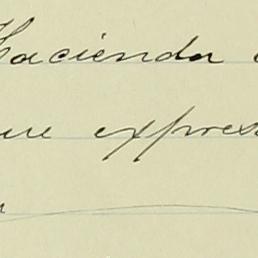 Hacienda
que expres